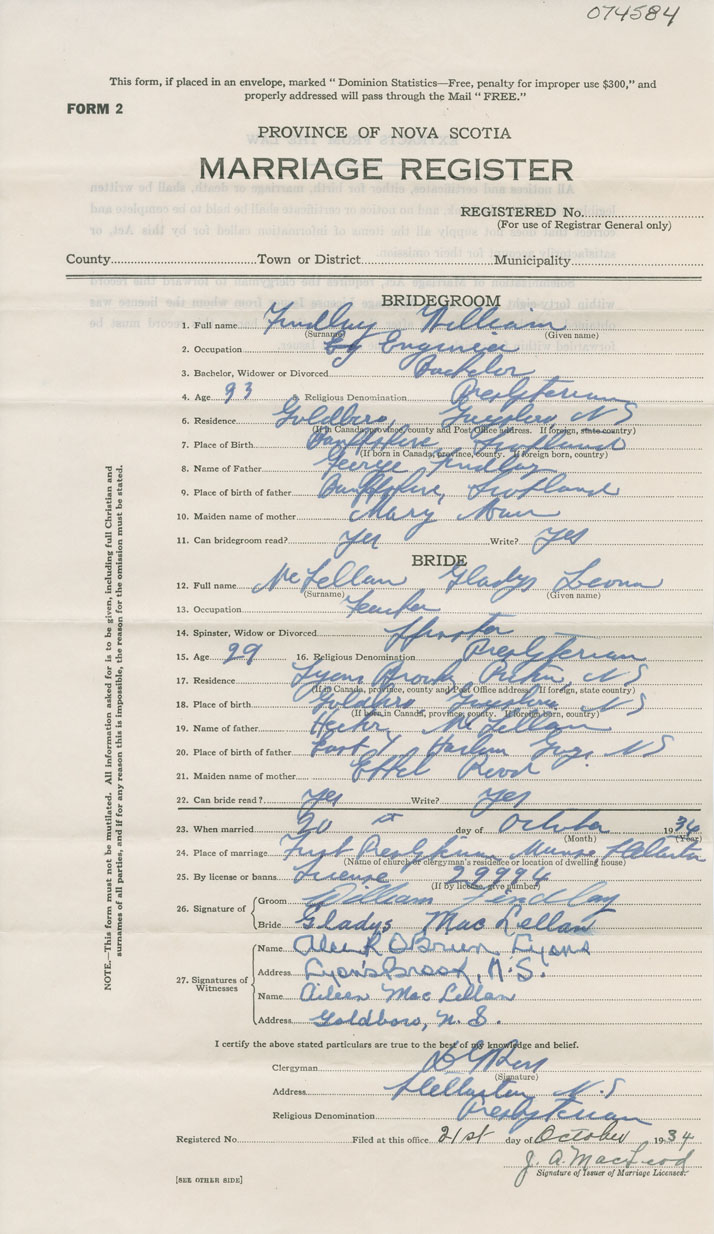 074584
This form, if placed in an envelope, marked "Dominion Statistics—Free, penalty for improper use $300," and
properly addressed will pass through the Mail "FREE."
FORM 2
PROVINCE OF NOVA SCOTIA
MARRIAGE REGISTER
REGISTERED No.
(For use of Registrar General only)
County Town or District Municipality
BRIDEGROOM
1. Full name Findlay William
(Surname) (Given name)
2. Occupation Engineer
3. Bachelor, Widower or Divorced Bachelor
4. Age 5. Religious Denomination Presbyterian
6. Residence Goldboro, Guysboro NS
(If in Canada, province, county and Post Office address. If foreign, state country)
7. Place of Birth Banffshire Scotland
(If born in Canada, province, county. If foreign born, country)
8. Name of Father George Findlay
9. Place of birth of father Banffshire, Scotland
10. Maiden name of mother Mary
11. Can bridegroom read? Yes Write? Yes
BRIDE
12. Full name McLellan Gladys Leona
(Surname) (Given name)
13. Occupation Teacher
14. Spinster, Widow or Divorced Spinster
15. Age 29 16. Religious Denomination Presbyterian
17. Residence Lyons Brook, Pictou, NS
(If in Canada, province, county and Post Office address. If foreign, state country)
18. Place of birth Goldboro Guysboro NS
(If born in Canada, province, county. If foreign born, country)
19. Name of father Hector McLellan
20. Place of birth of father NS
21. Maiden name of mother Effel
22. Can bride read? Yes Write? Yes
23. When married 20 day of October 1934
(Month) (Year)
24. Place of marriage First Presbyterian Manse Stellarton
(Name of church or clergyman's residence or location of dwelling house)
25. By license or banns License 29994
(If by license, give number)
26. Signature of
Groom William Findlay
Bride Gladys MacLellan
27. Signatures of Witnesses
Name O'Brien Lyons
Address Lyon's Brook, N.S.
Name Aileen MacLellan
Address Goldboro, N.S.
I certify the above stated particulars are true to the best of my knowledge and belief.
Clergyman
(Signature)
Address Stellarton N.S
Religious Denomination Presbyterian
Registered No. Filed at this office 21st day of October 1934
J. A. MacLeod
Signature of Issuer of Marriage Licenses.
[SEE OTHER SIDE]
NOTE.—This form must not be mutilated. All information asked for is to be given, including full Christian and
surnames of all parties, and if for any reason this is impossible, the reason for the omission must be stated.